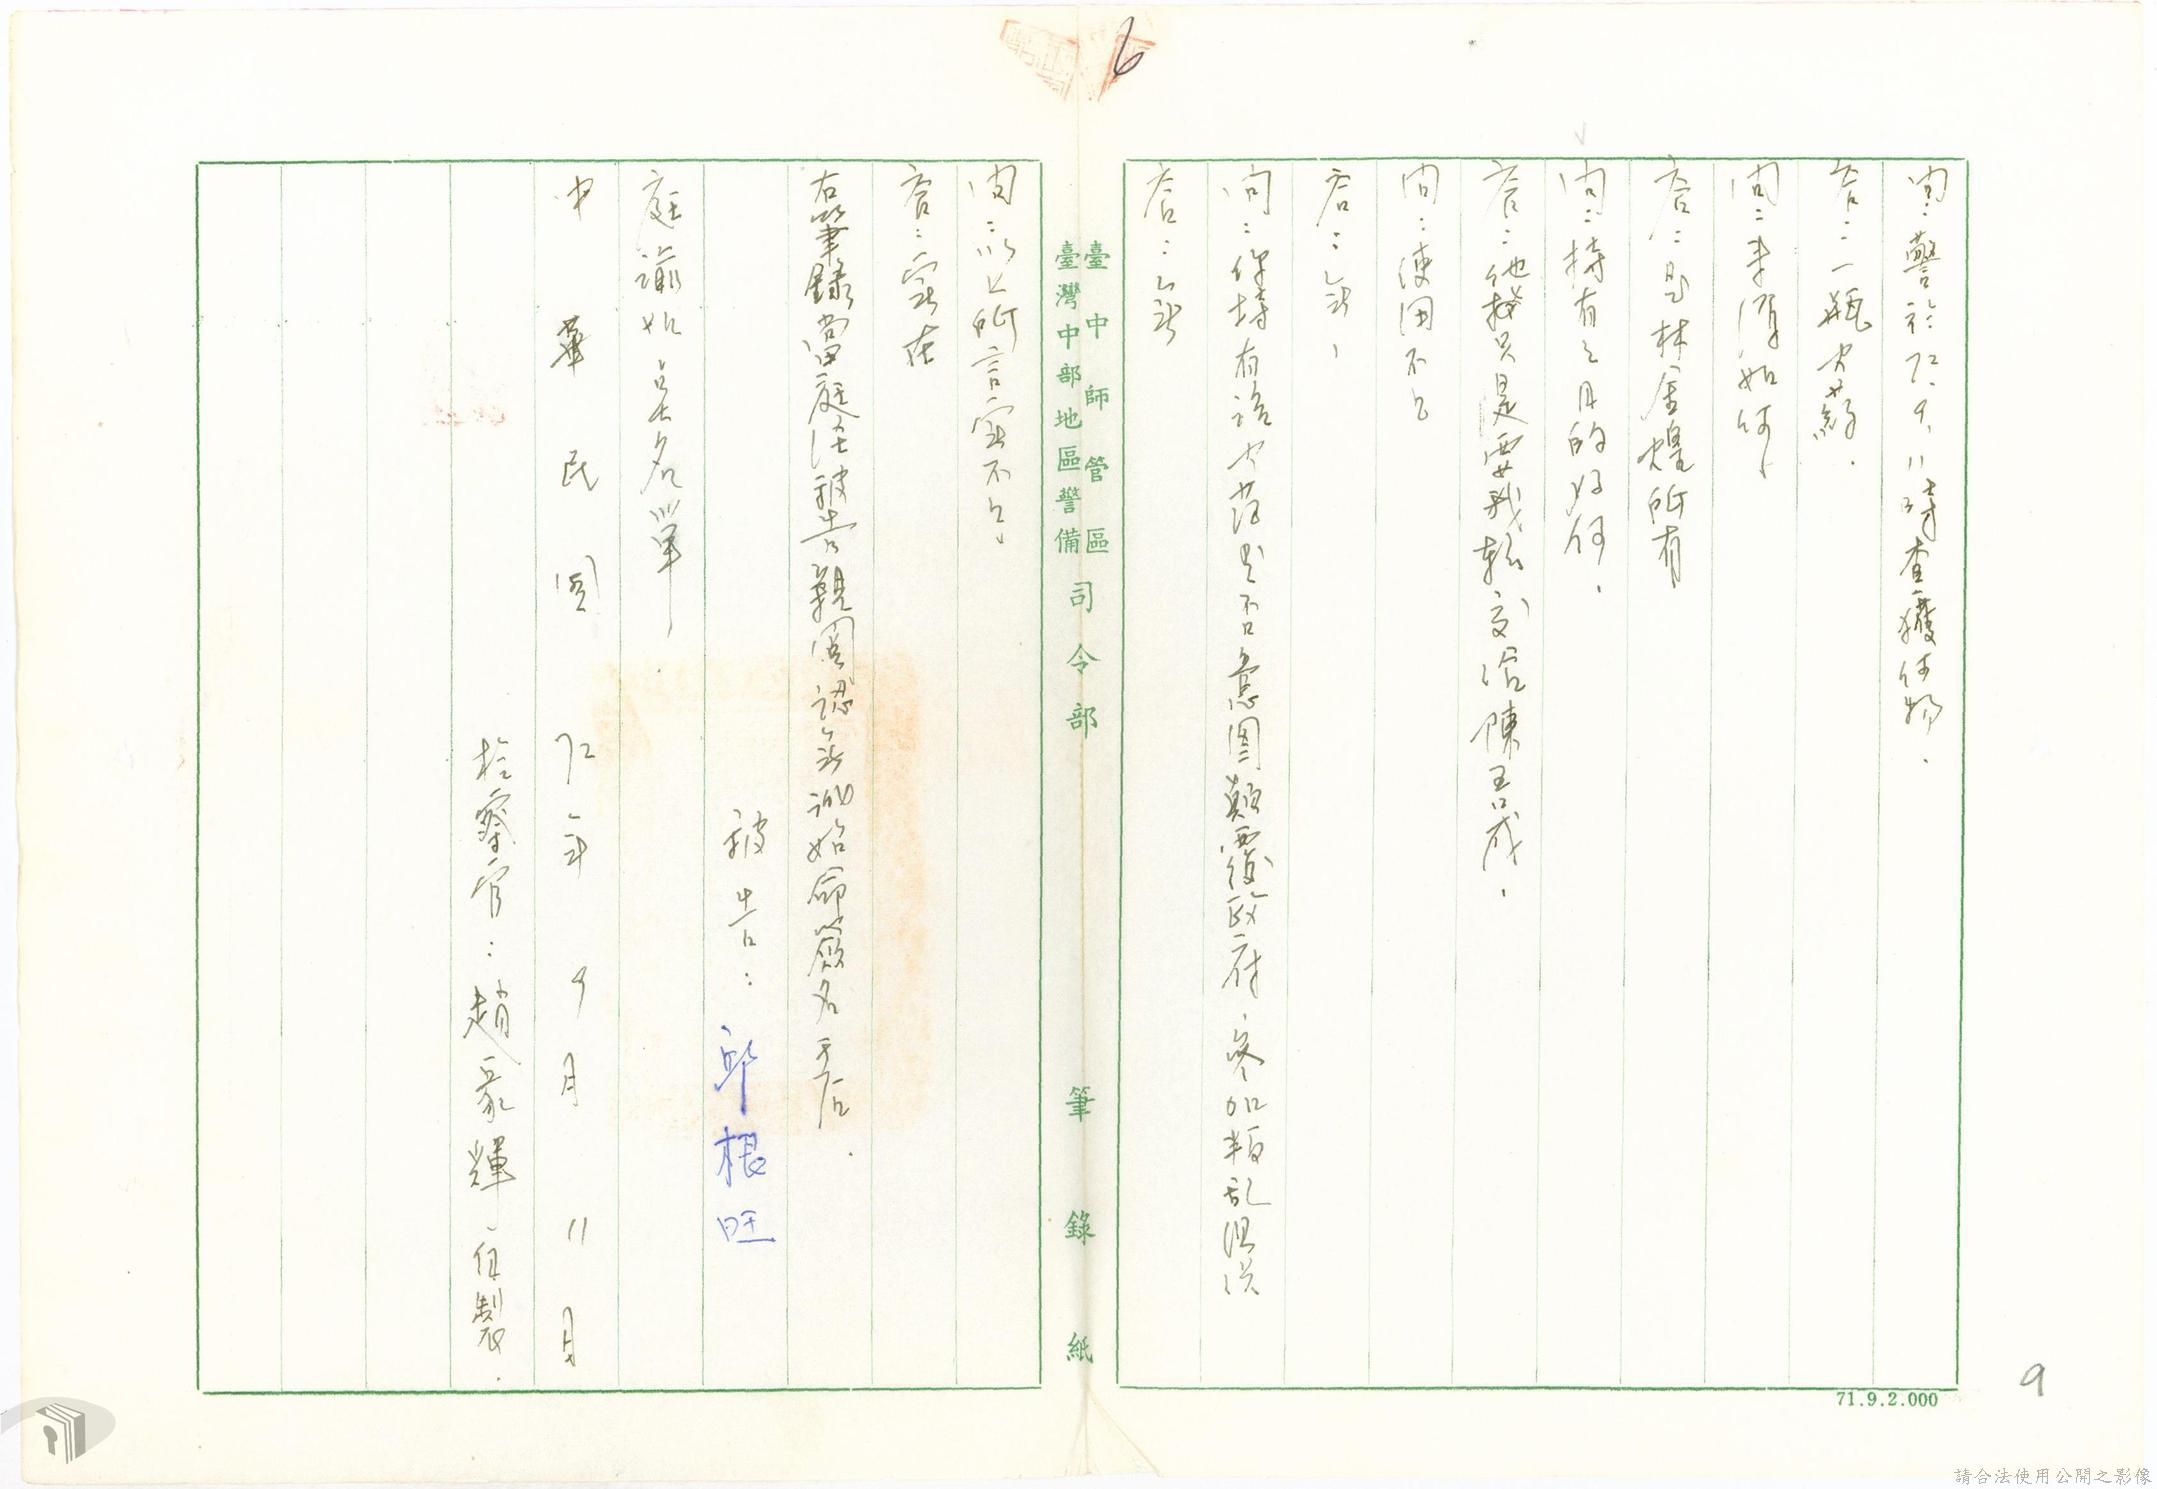 6
問：警於72.9.11時查獲何物.
答：一瓶火藥.
問：來源如何、
答：是林金煌所有
問：持有之目的為何.
答：他只是要我轉交給陳吉成.
問：使用不？
答：無、
問：你持有該火藥是否意圖顛覆政府，參加叛乱組織
答：無
臺中師管區
臺灣中部地區警備
司令部 筆錄紙
問：以上所言實不？
答：實在
右筆錄當庭經被告親閱認無訛始命簽名于后.
被告：邱根旺
庭諭如點名單
中華民國72年9月11日
檢察官：趙家輝 自製.
71.9.2.000
9
請合法使用公開之影像